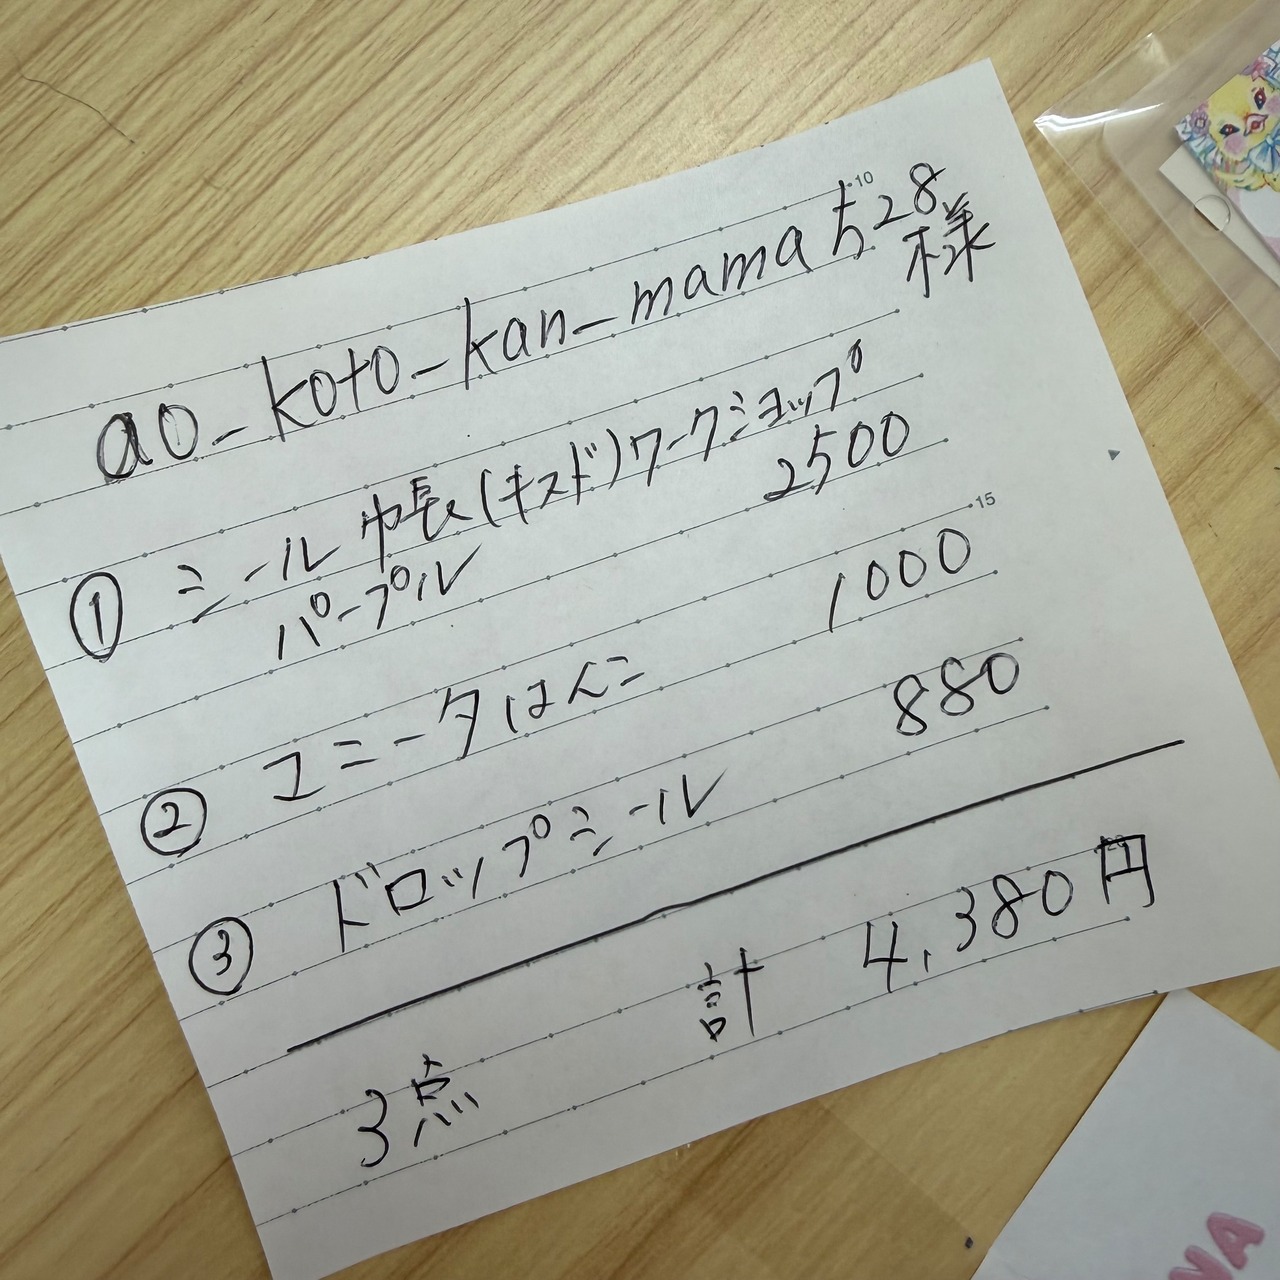 10
ao_koto_kan_mama528
様
① シール帳(キスド)ワークショップ
パープル 2500
15
② ユニータはんこ 1000
③ ドロップシール 880
計 4,380円
3点
NA